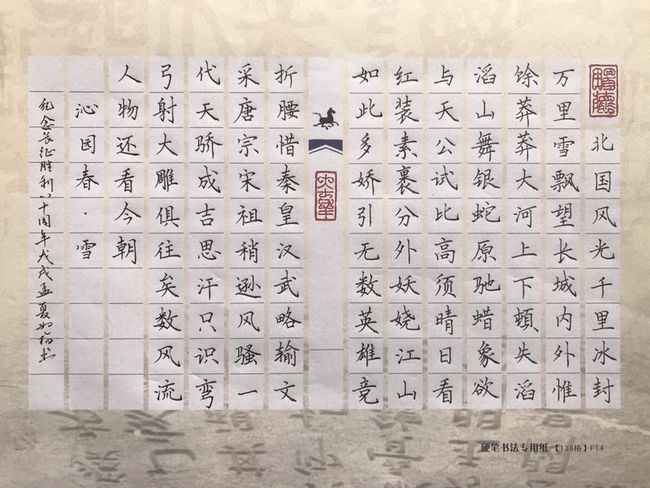 北国风光千里冰封
万里雪飘望长城内外惟
馀莽莽大河上下頓失滔
滔山舞银蛇原驰蜡象欲
与天公试比高须晴日看
红装素裹分外妖娆江山
如此多娇引无数英雄竞
折腰惜秦皇汉武略输文
采唐宗宋祖稍逊风骚一
代天骄成吉思汗只识弯
弓射大雕俱往矣数风流
人物还看今朝
沁园春·雪
纪念长征胜利八十周年戊戌孟夏如书
硬笔书法专用纸【138格】F14